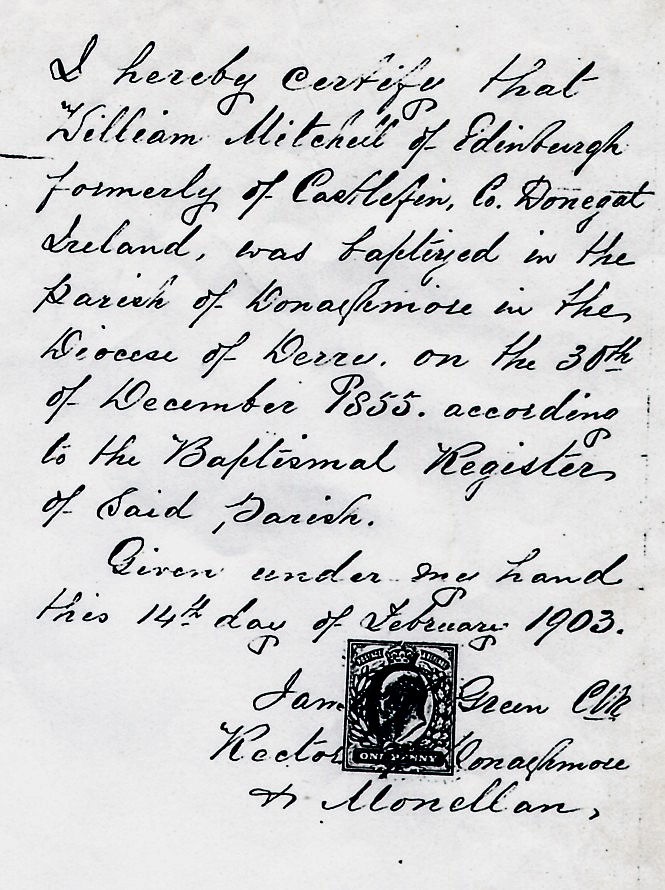 I hereby certify that
William Mitchell of Edinburgh
formerly of Castlefin, Co. Donegal
Ireland, was baptized in the
parish of Donaghmore in the
Diocese of Derry. on the 30th
of December 1855. according
to the Baptismal Register
of Said Parish.
Given under my hand
this 14th day of February 1903.
Jam Green Clk
Rector Donaghmore
ONE PENNY
& Monellan,